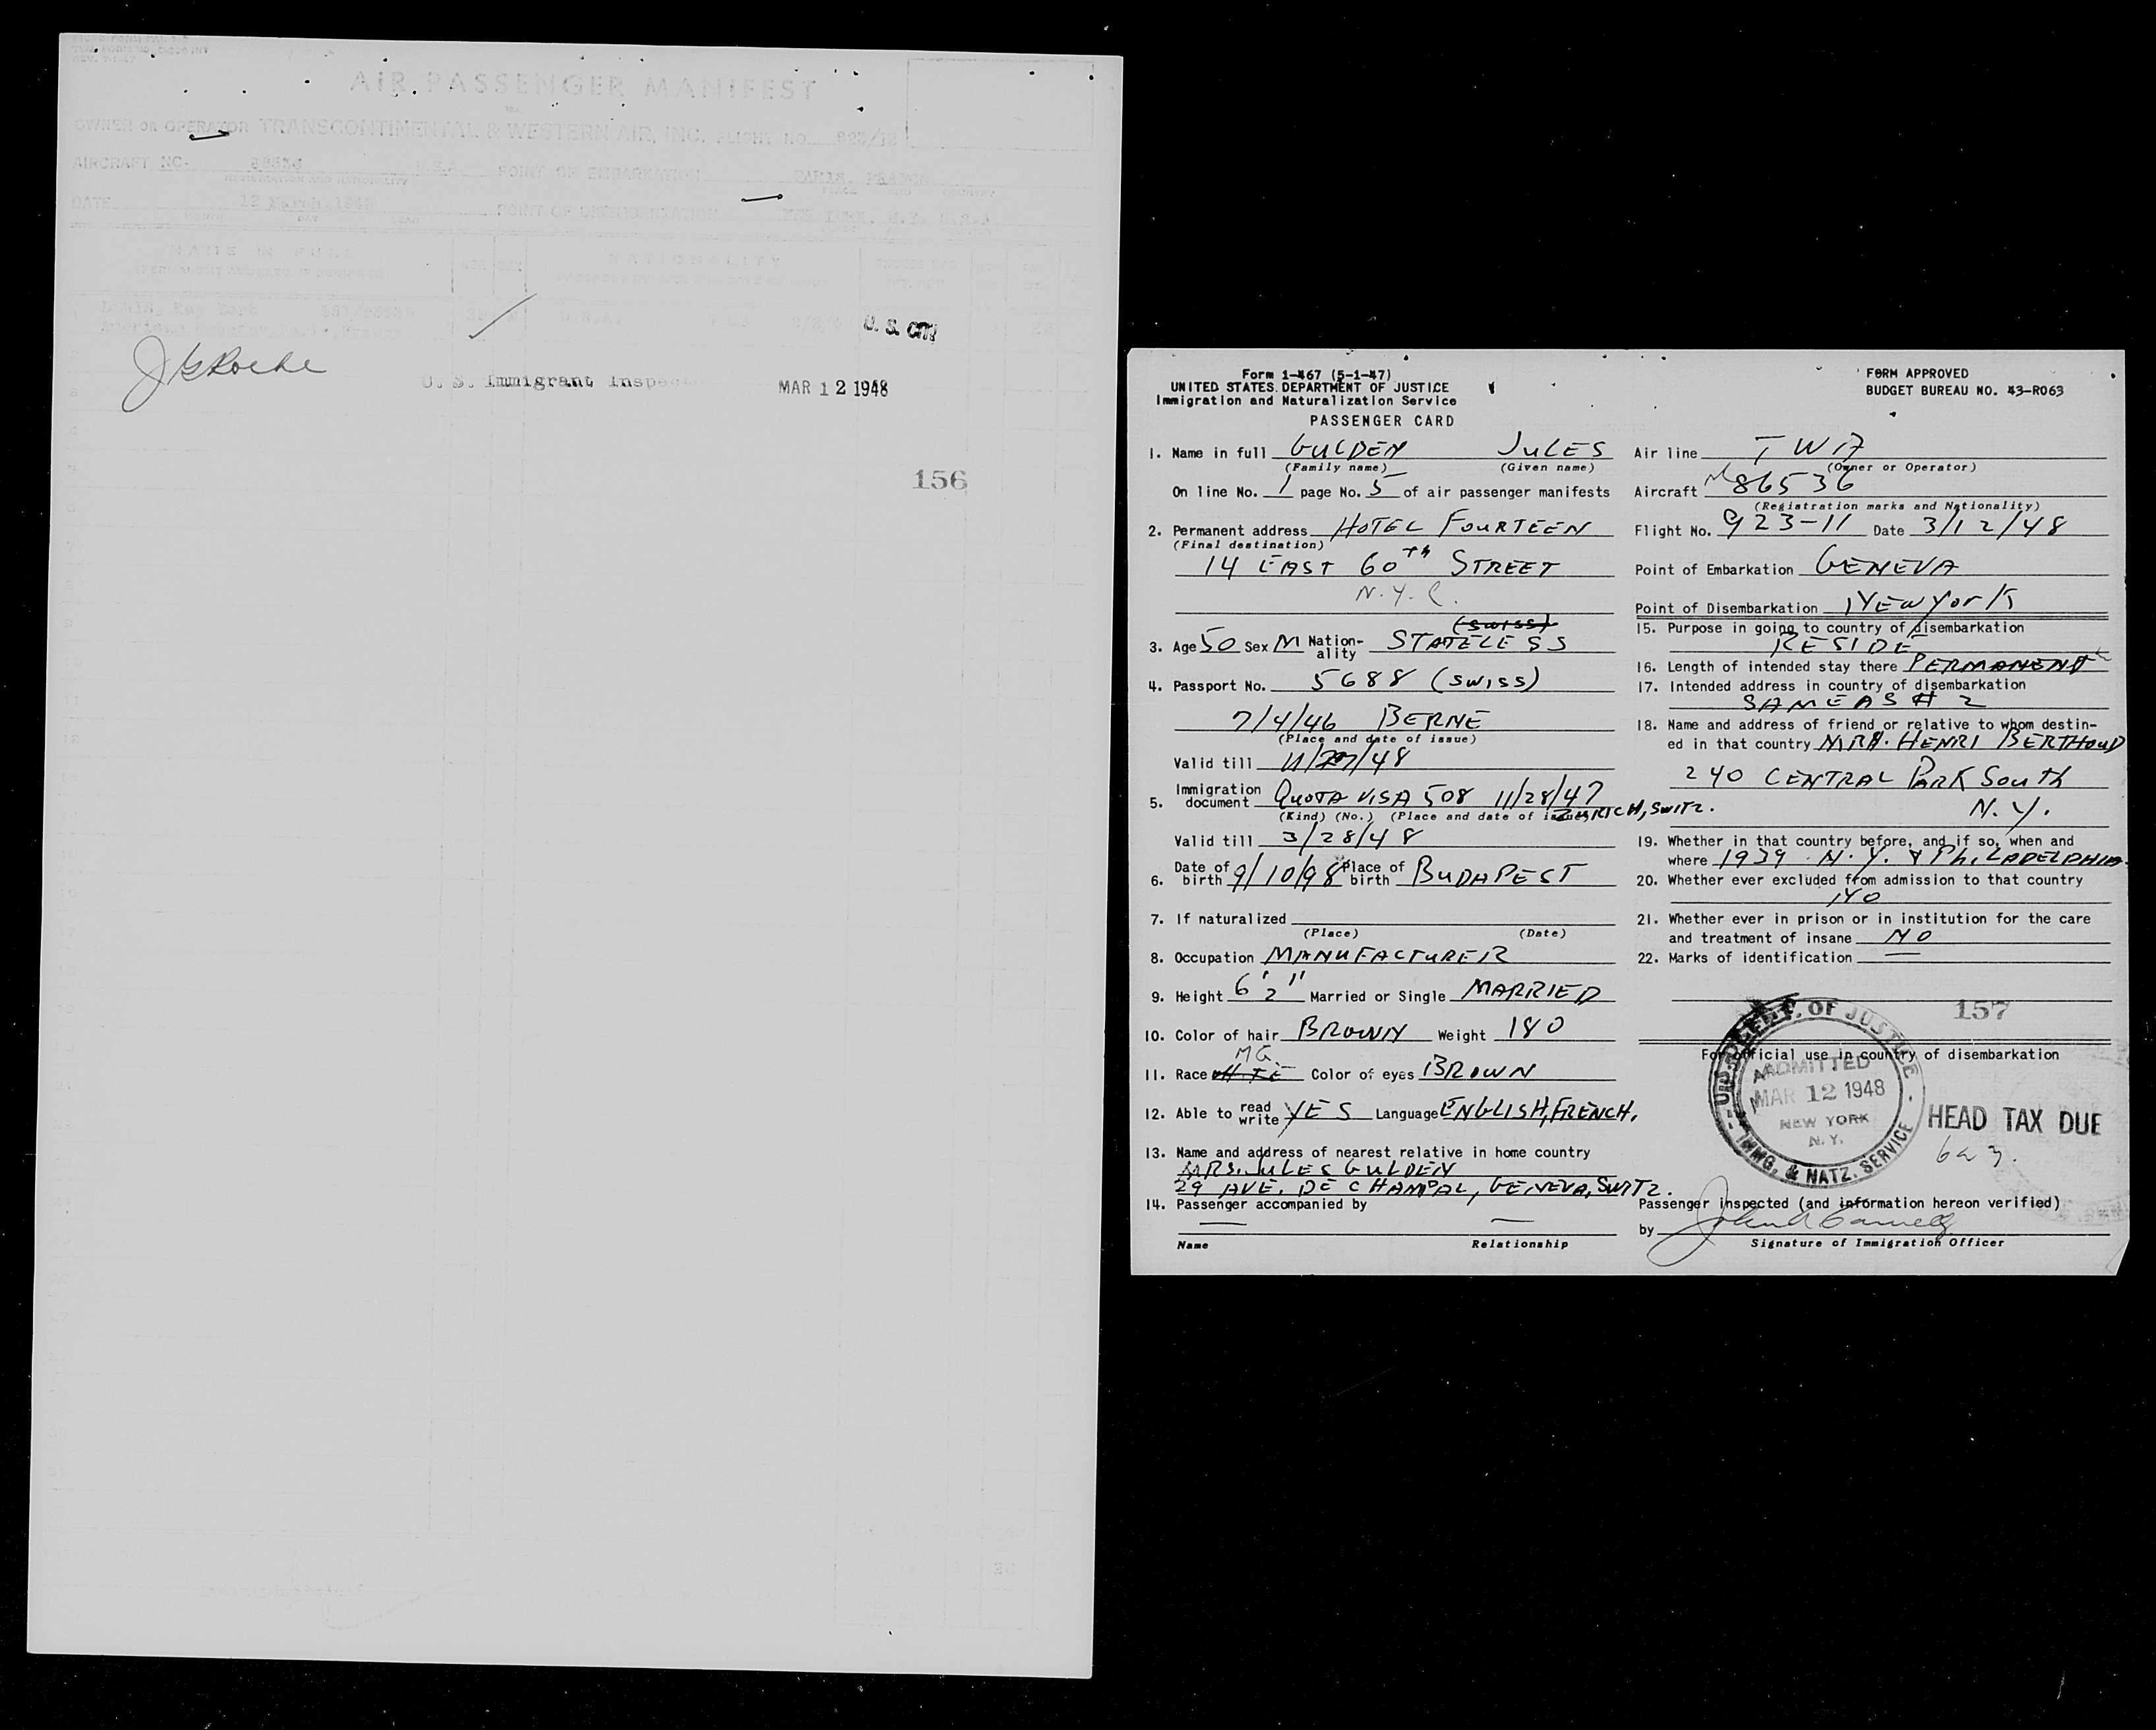 AIR PASSENGER MANIFEST
OWNER OR OPERATOR TRANSCONTINENTAL & WESTERN AIR, INC. FLIGHT NO.
AIRCRAFT NO. POINT OF EMBARKATION PARIS, FRANCE
DATE 12 March 1948 POINT OF DISEMBARKATION
NAME IN FULL AGE SEX NATIONALITY
U. S. Cit
U. S. Immigrant Inspec
MAR 12 1948
156
Form 1-467 (5-1-47)
UNITED STATES DEPARTMENT OF JUSTICE
Immigration and Naturalization Service
PASSENGER CARD
FORM APPROVED
BUDGET BUREAU NO. 43-R063
1. Name in full GULDEN JULES
(Family name) (Given name)
On line No. 1 page No. 5 of air passenger manifests
2. Permanent address HOTEL FOURTEEN
(Final destination)
14 EAST 60TH STREET
N.Y.C.
(SWISS)
3. Age 50 Sex M Nation-ality STATELESS
4. Passport No. 5688 (SWISS)
7/4/46 BERNE
(Place and date of issue)
Valid till 11/27/48
5. Immigration document QUOTA VISA 508 11/28/47 ZURICH, SWITZ.
(Kind) (No.) (Place and date of issue)
Valid till 3/28/48
6. Date of birth 9/10/98 Place of birth BUDAPEST
7. If naturalized
(Place) (Date)
8. Occupation MANUFACTURER
9. Height 6'2" Married or Single MARRIED
10. Color of hair BROWN Weight 180
MG.
11. Race Color of eyes BROWN
12. Able to read write YES Language ENGLISH, FRENCH,
13. Name and address of nearest relative in home country
MRS. JULES GULDEN
29 AVE. DE CHAMPAL, GENEVA, SWITZ.
14. Passenger accompanied by
— —
Name Relationship
Air line TWA
(Owner or Operator)
Aircraft N86536
(Registration marks and Nationality)
Flight No. 923-11 Date 3/12/48
Point of Embarkation GENEVA
Point of Disembarkation NEW YORK
15. Purpose in going to country of disembarkation
RESIDE
16. Length of intended stay there PERMANENT
17. Intended address in country of disembarkation
SAME AS # 2
18. Name and address of friend or relative to whom destin-
ed in that country HENRI BERTHOUD
240 CENTRAL PARK SOUTH
N.Y.
19. Whether in that country before, and if so, when and
where 1939 N.Y. & PHILADELPHIA
20. Whether ever excluded from admission to that country
NO
21. Whether ever in prison or in institution for the care
and treatment of insane NO
22. Marks of identification —
157
For official use in country of disembarkation
U.S. DEPT. OF JUSTICE
ADMITTED
MAR 12 1948
NEW YORK
N.Y.
IMMG. & NATZ. SERVICE
HEAD TAX DUE
Passenger inspected (and information hereon verified)
by
Signature of Immigration Officer